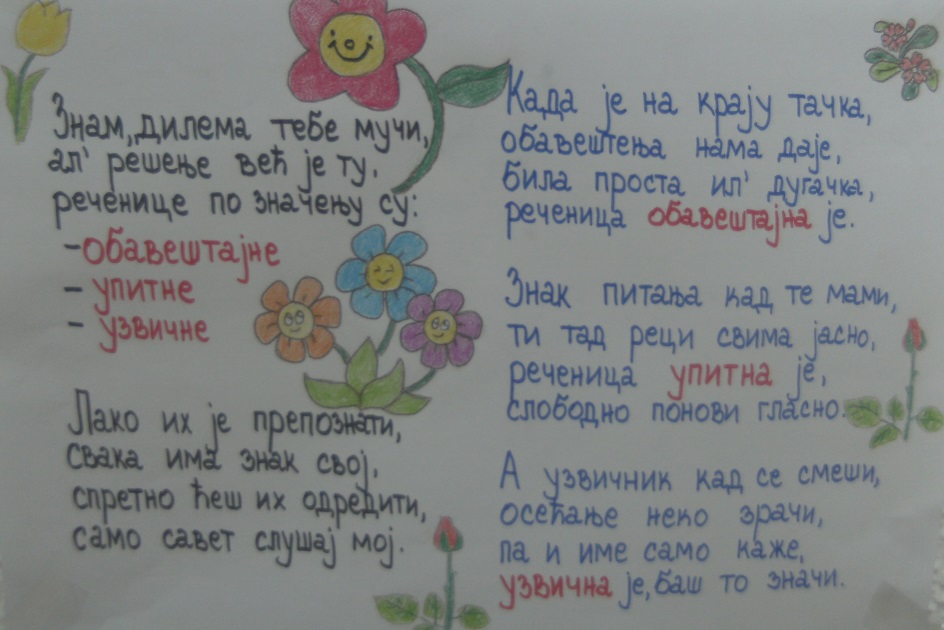 Знам, дилема тебе мучи,
ал' решење већ је ту.
реченице по значењу су:
-обавештајне
- упитне
- узвичне
Лако их је препознати,
свака има знак свој,
спретно ћеш их одредити,
само савет слушај мој.
Када је на крају тачка,
обавештења нама даје,
била проста ил' дугачка,
реченица обавештајна је.
Знак питања кад те мами,
ти тад реци свима јасно,
реченица упитна је,
слободно понови гласно.
А узвичник кад се смеши,
осећање неко зрачи,
па и име само каже,
узвична је, баш то значи.